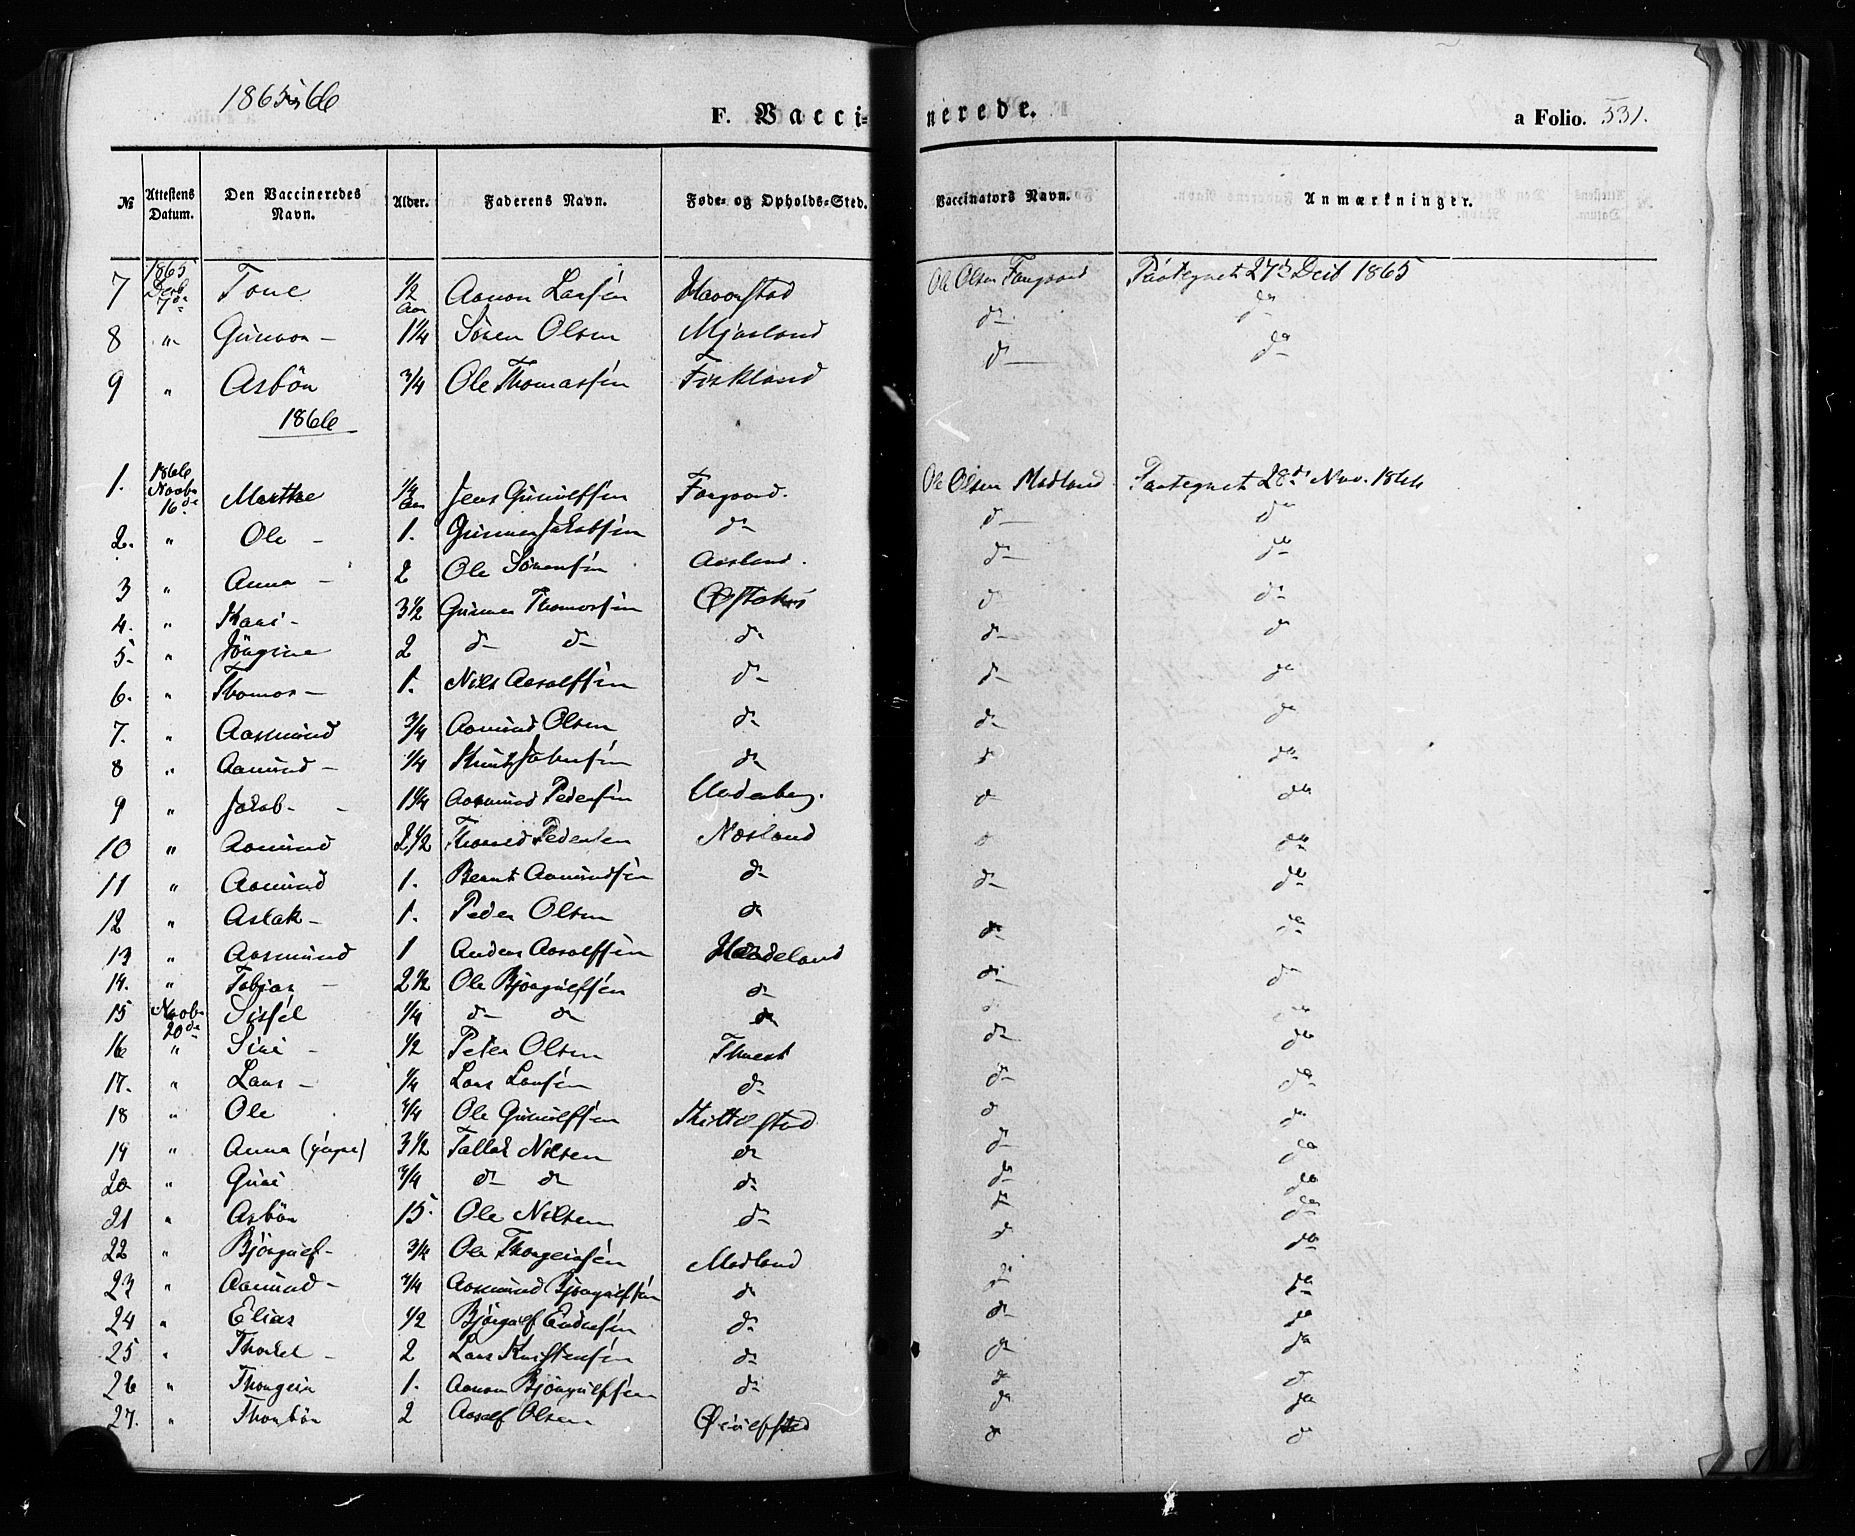 1865-66
F. Vaccinerede. a Folio. 331.
№ Attestens Datum. Den Vaccineredes Navn. Alder. Faderens Navn. Føde- og Opholds-Sted. Vaccinators Navn. Anmærkninger.
7 1865 Decb 7de Tone 1/2 Aar Aanon Larsen Haverstad Ole Olsen Faugvand Paategnet 27de Decb 1865
8 " Gunvor - 1 1/4 Sören Olsen Mjaaland do do
9 " Asbör 3/4 Ole Thomassen Fiskland do do
1866
1. 1866 Novbr 16de Marthe 1/2 Aar Jens Gunulfsen Ole Olsen Madland Paategnet 28de Nov. 1866
2. " Ole - 1. Gunner Jakobsen do do do
3 " Anna - 2 Ole Sörensen Aasland. do do
4. " Kari - 3 1/2 Gunner Thomassen do do
5 " Jörgine 2 do do do do do
6. " Thomas - 1. Nils Aasolfsen do do do
7. " Aasmund 3/4 Aamund Olsen do do do
8 " Aamund - 1/4 Knut do do do
9 " Jakob - 1 1/4 Aasmund Pedersen Underberg. do do
10 " Aamund 2 1/2 Pedersen Næsland do do
11 " Aamund 1. Bernt Aamundsen do do do
12 " Aslak - 1. Peder Olsen do do do
13 " Aasmund 1 Anders Aasolfsen do do
14. " Tobias - 2 1/2 Ole Björgulfsen do do do
15 Novb. 20de Sissel 1/4 do do do do do
16 " Siri - 1/2 Peter Olsen do do
17. " Lars - 1/4 Lars Larsen do do do
18 " Ole 3/4 Ole Gunulfsen Kittelstad do do
19 " Anna (yngre) 3 1/2 Tallak Nilsen do do do
20 " Guri 3/4 do do do do do
21 " Asbör 15 Ole Nilsen do do do
22 " Björgulf - 3/4 Ole Thorgeirsen Madland do do
23 " Aamund - 3/4 Aasmund Björgulfsen do do do
24 " Elias 1/2 Björgulf Endresen do do do
25 " Thorkel - 2 Lars Kristensen do do do
26 " Thorgeir 1. Aanon Björgulfsen do do do
27. " Thorbör 2 Aasulf Olsen do do